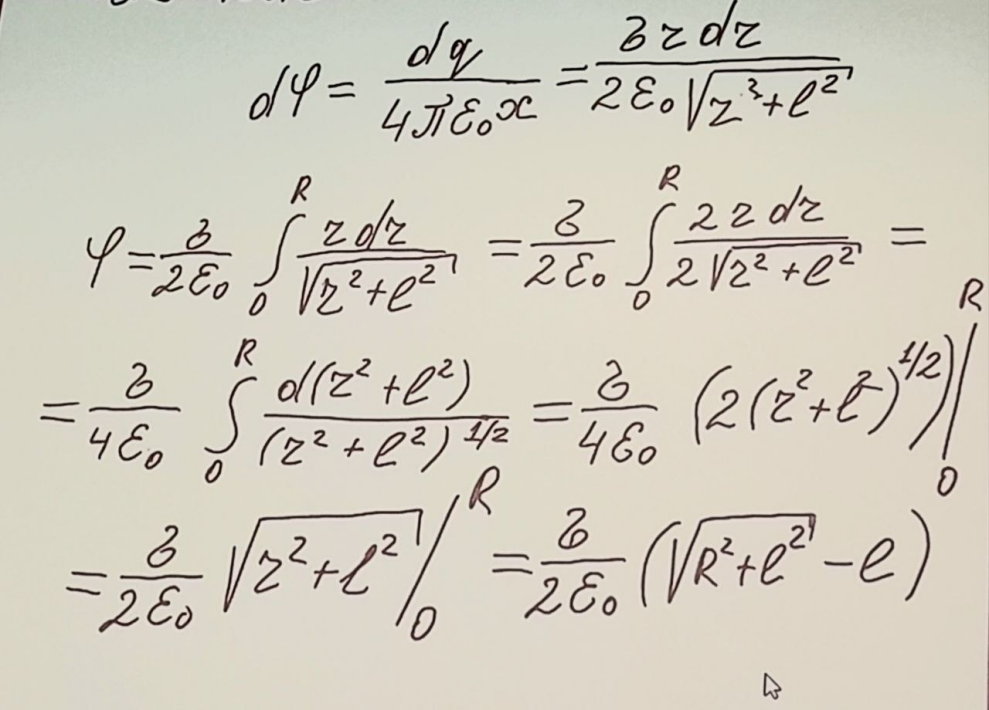 dφ = dq / (4πε₀x) = σ r dr / (2ε₀ √(r³ + l²))
φ = σ / (2ε₀) ∫₀ᴿ r dr / √(r² + l²) = σ / (2ε₀) ∫₀ᴿ 2 r dr / (2 √(r² + l²)) =
= σ / (4ε₀) ∫₀ᴿ d(r² + l²) / (r² + l²)^(1/2) = σ / (4ε₀) (2 (r² + l²)^(1/2)) |₀ᴿ
= σ / (2ε₀) √(r² + l²) |₀ᴿ = σ / (2ε₀) (√(R² + l²) − l)